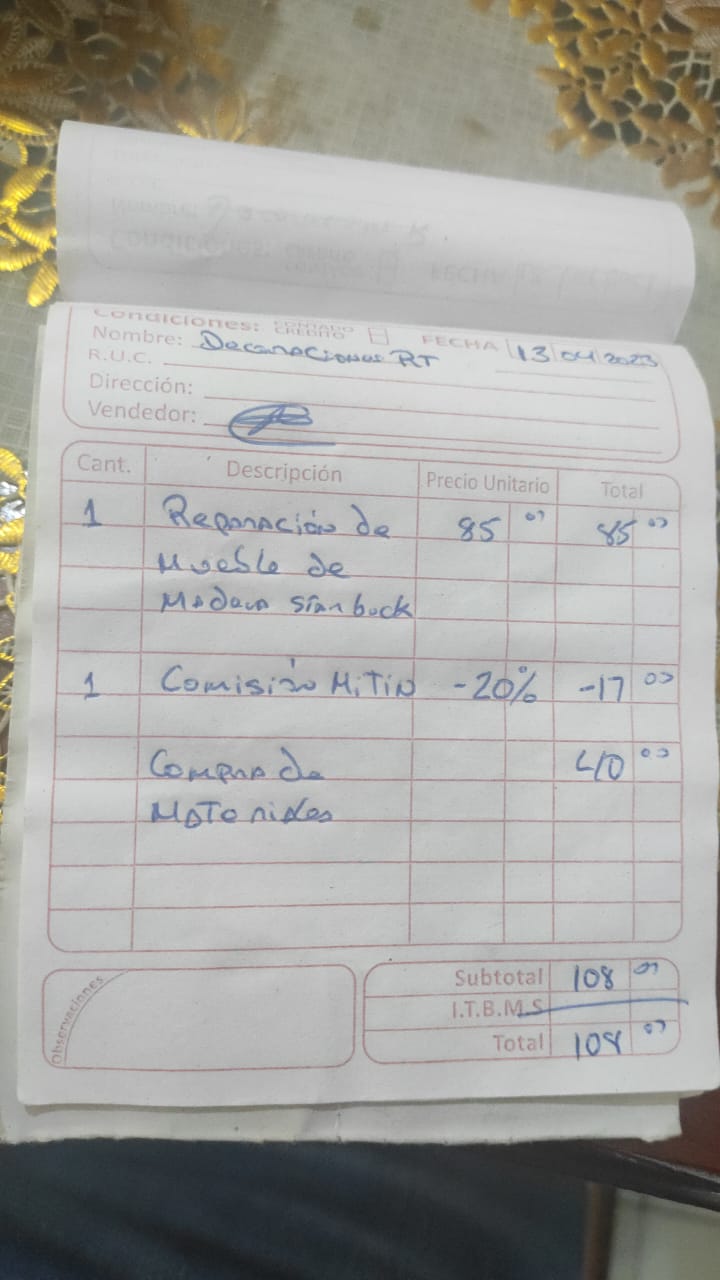 Condiciones: CONTADO CREDITO FECHA 13 04 2023
Nombre: Decoraciones RT
R.U.C.
Dirección:
Vendedor:
Cant. Descripción Precio Unitario Total
1 Reparación de 85 00 85 00
Mueble de
Madera Stanbuck
1 Comisión MiTin -20% -17 00
Compra de 40 00
Materiales
Observaciones
Subtotal 108 00
I.T.B.M.S
Total 108 00